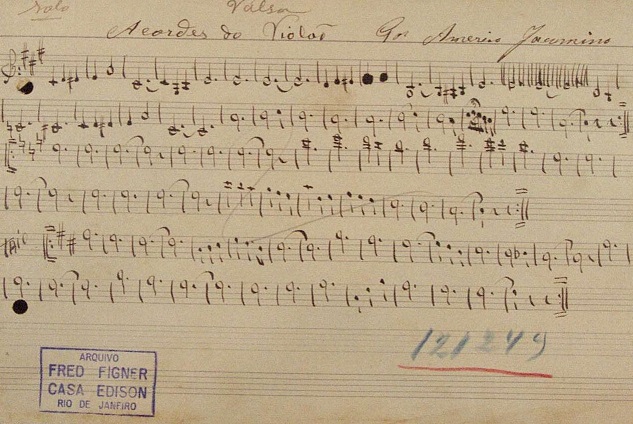 Solo Valsa
Acordes do Violão Por Americo Jacomino
121249
ARQUIVO
FRED FIGNER
CASA EDISON
RIO DE JANEIRO